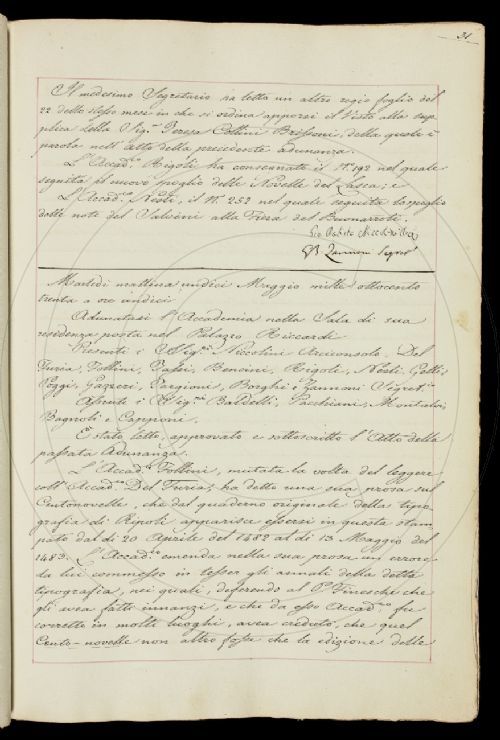 31
Il medesimo Segretario ha letto un altro regio foglio del
22 dello stesso mese in che si ordina apporsi il visto alla sup=
plica della Sig.ra Teresa Cettini Brissoni, della quale è
parola nell'Atto della precedente adunanza.
L'Accad.co Rigoli ha consegnato il N.o 192 nel quale
seguita il nuovo spoglio delle Novelle del Lasca; e
L'Accad.co Nesti, il N. 252 nel quale seguita lo spoglio
delle note del Salvini alla Fiera del Buonarroti.
Gio Batista Niccolini
GB Zannoni Segret.o
Martedì mattina undici Maggio mille ottocento
trenta a ore undici
Adunatasi l'Accademia nella Sala di sua
residenza posta nel Palazzo Riccardi
Presenti i SSig.ri Niccolini Arciconsolo. Del
Furia, Follini, Sassi, Bencini, Rigoli, Nesti, Gelli,
Poggi, Gazzeri, Targioni, Borghi e Zannoni Segret.o
Assenti i SSig.ri Baldelli, Pacchiani, Montalvi,
Bagnoli e Capponi.
È stato letto, approvato e sottoscritto l'Atto della
passata Adunanza.
L'Accad.co Follini, mutata la volta del leggere
coll'Accad.co Del Furia, ha detto una sua prosa sul
Centonovelle, che dal quaderno originale della tipo=
grafia di Ripoli apparisce essersi in questa stam=
pato dal dì 20 Aprile del 1482 al dì 13 Maggio del
1483. L'Accad.co emenda nella sua prosa un errore
da lui commesso in tesser gli annali della detta
tipografia, nei quali, deferendo al P. Fineschi che
gli avea fatti innanzi, e che da esso Accad.co fu
corretto in molti luoghi, avea creduto, che quel
Cento=novelle non altro fosse che la edizione delle